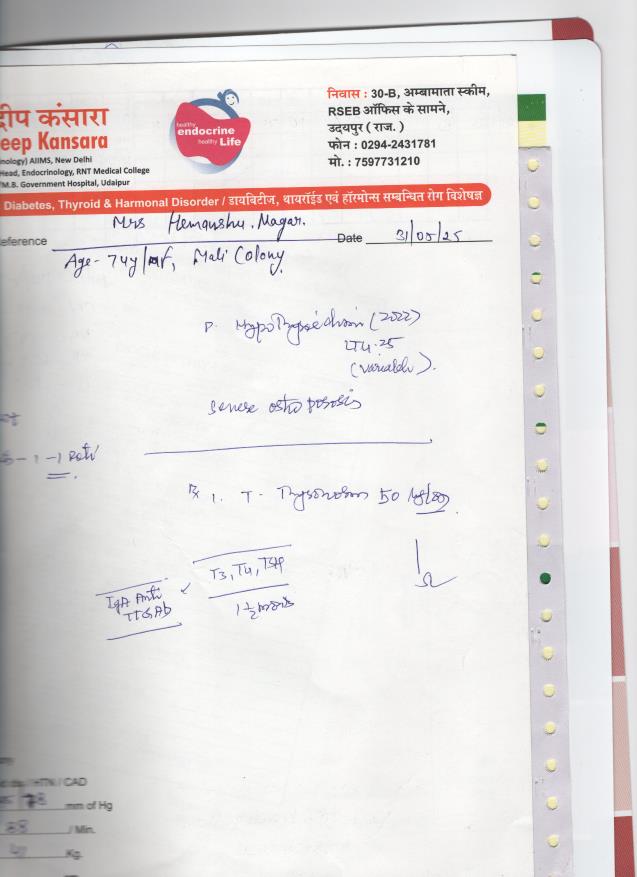 दीप कंसारा
निवास : 30-B, अम्बामाता स्कीम,
RSEB ऑफिस के सामने,
उदयपुर ( राज. )
फोन : 0294-2431781
मो. : 7597731210
healthy
endocrine
healthy Life
eep Kansara
nology) AIIMS, New Delhi
Head, Endocrinology, RNT Medical College
M.B. Government Hospital, Udaipur
Diabetes, Thyroid & Harmonal Disorder / डायबिटीज, थायरॉईड एवं हॉरमोन्स सम्बन्धित रोग विशेषज्ञ
Mrs Hemanshu. Nagar.
eference Date 31/05/25
Age- 74y/ f, Mali Colony
(2022)
25
(variable).
Severe
- 1 - 1
Rx 1. T- 50
T3, T4, TSH
IgA Anti
TTG Ab
1 1/2
/ HTN / CAD
/78 mm of Hg
88 / Min.
Kg.